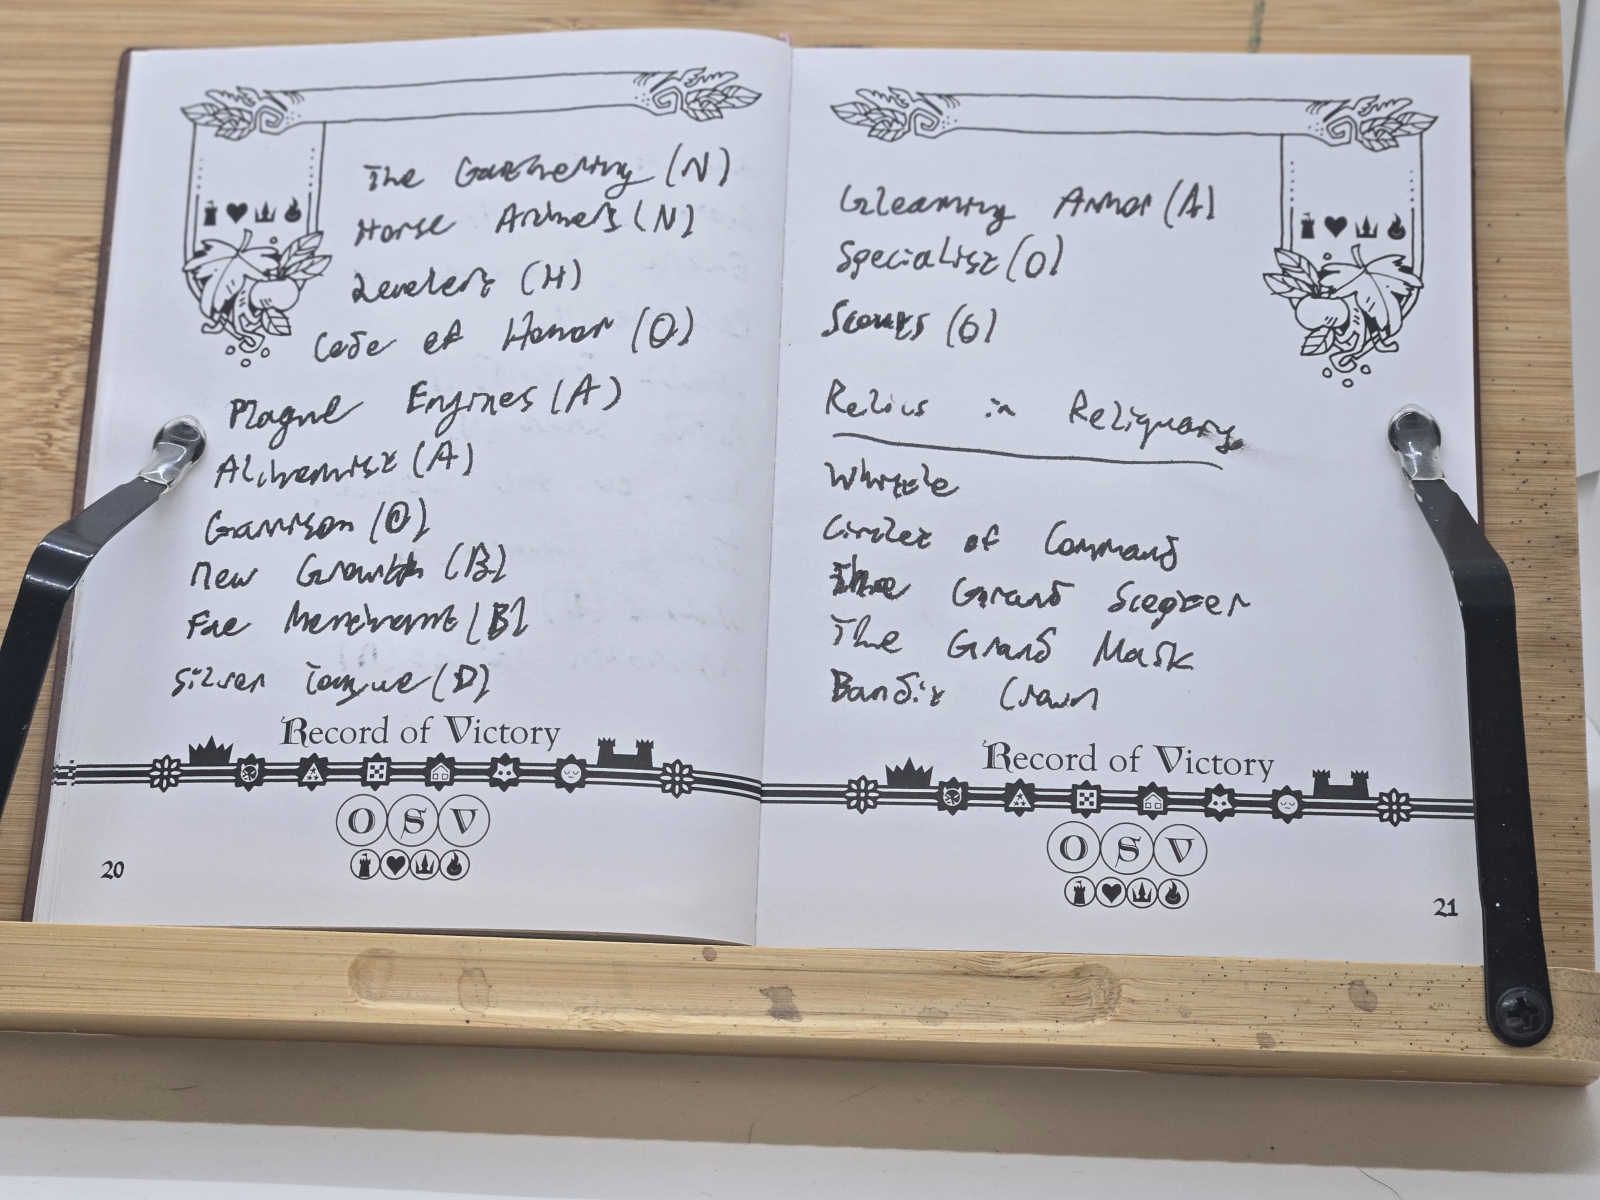 The Gathering (N)
Horse Archers (N)
Levelers (H)
Code of Honor (O)
Plague Engines (A)
Alchemist (A)
Garrison (O)
New Growth (B)
Fae Merchant (B)
Silver Tongue (D)
Record of Victory
O S V
20
Gleaming Armor (A)
Specialist (O)
Scouts (O)
Relics in Reliquary
Whistle
Circlet of Command
The Grand Scepter
The Grand Mask
Bandit Crown
Record of Victory
O S V
21